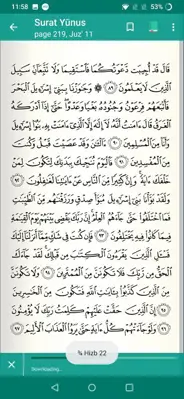 11:58
58%
Surat Yūnus
page 219, Juz' 11
قَالَ قَدْ أُجِيبَت دَّعْوَتُكُمَا فَٱسْتَقِيمَا وَلَا تَتَّبِعَآنِّ سَبِيلَ
ٱلَّذِينَ لَا يَعْلَمُونَ ٨٩ ۞ وَجَٰوَزْنَا بِبَنِىٓ إِسْرَٰٓءِيلَ ٱلْبَحْرَ
فَأَتْبَعَهُمْ فِرْعَوْنُ وَجُنُودُهُۥ بَغْيًا وَعَدْوًا حَتَّىٰٓ إِذَآ أَدْرَكَهُ
ٱلْغَرَقُ قَالَ ءَامَنتُ أَنَّهُۥ لَآ إِلَٰهَ إِلَّا ٱلَّذِىٓ ءَامَنَتْ بِهِۦ بَنُوٓا۟ إِسْرَٰٓءِيلَ
وَأَنَا۠ مِنَ ٱلْمُسْلِمِينَ ٩٠ ءَآلْـَٰٔنَ وَقَدْ عَصَيْتَ قَبْلُ وَكُنتَ
مِنَ ٱلْمُفْسِدِينَ ٩١ فَٱلْيَوْمَ نُنَجِّيكَ بِبَدَنِكَ لِتَكُونَ لِمَنْ
خَلْفَكَ ءَايَةً ۚ وَإِنَّ كَثِيرًا مِّنَ ٱلنَّاسِ عَنْ ءَايَٰتِنَا لَغَٰفِلُونَ ٩٢
وَلَقَدْ بَوَّأْنَا بَنِىٓ إِسْرَٰٓءِيلَ مُبَوَّأَ صِدْقٍ وَرَزَقْنَٰهُم مِّنَ ٱلطَّيِّبَٰتِ
فَمَا ٱخْتَلَفُوا۟ حَتَّىٰ جَآءَهُمُ ٱلْعِلْمُ ۚ إِنَّ رَبَّكَ يَقْضِى بَيْنَهُمْ يَوْمَ ٱلْقِيَٰمَةِ
فِيمَا كَانُوا۟ فِيهِ يَخْتَلِفُونَ ٩٣ فَإِن كُنتَ فِى شَكٍّ مِّمَّآ أَنزَلْنَآ إِلَيْكَ
فَسْـَٔلِ ٱلَّذِينَ يَقْرَءُونَ ٱلْكِتَٰبَ مِن قَبْلِكَ ۚ لَقَدْ جَآءَكَ
ٱلْحَقُّ مِن رَّبِّكَ فَلَا تَكُونَنَّ مِنَ ٱلْمُمْتَرِينَ ٩٤ وَلَا تَكُونَنَّ
مِنَ ٱلَّذِينَ كَذَّبُوا۟ بِـَٔايَٰتِ ٱللَّهِ فَتَكُونَ مِنَ ٱلْخَٰسِرِينَ
٩٥ إِنَّ ٱلَّذِينَ حَقَّتْ عَلَيْهِمْ كَلِمَتُ رَبِّكَ لَا يُؤْمِنُونَ
٩٦ وَلَوْ جَآءَتْهُمْ كُلُّ ءَايَةٍ حَتَّىٰ يَرَوُا۟ ٱلْعَذَابَ ٱلْأَلِيمَ ٩٧
¾ Hizb 22
Downloading...